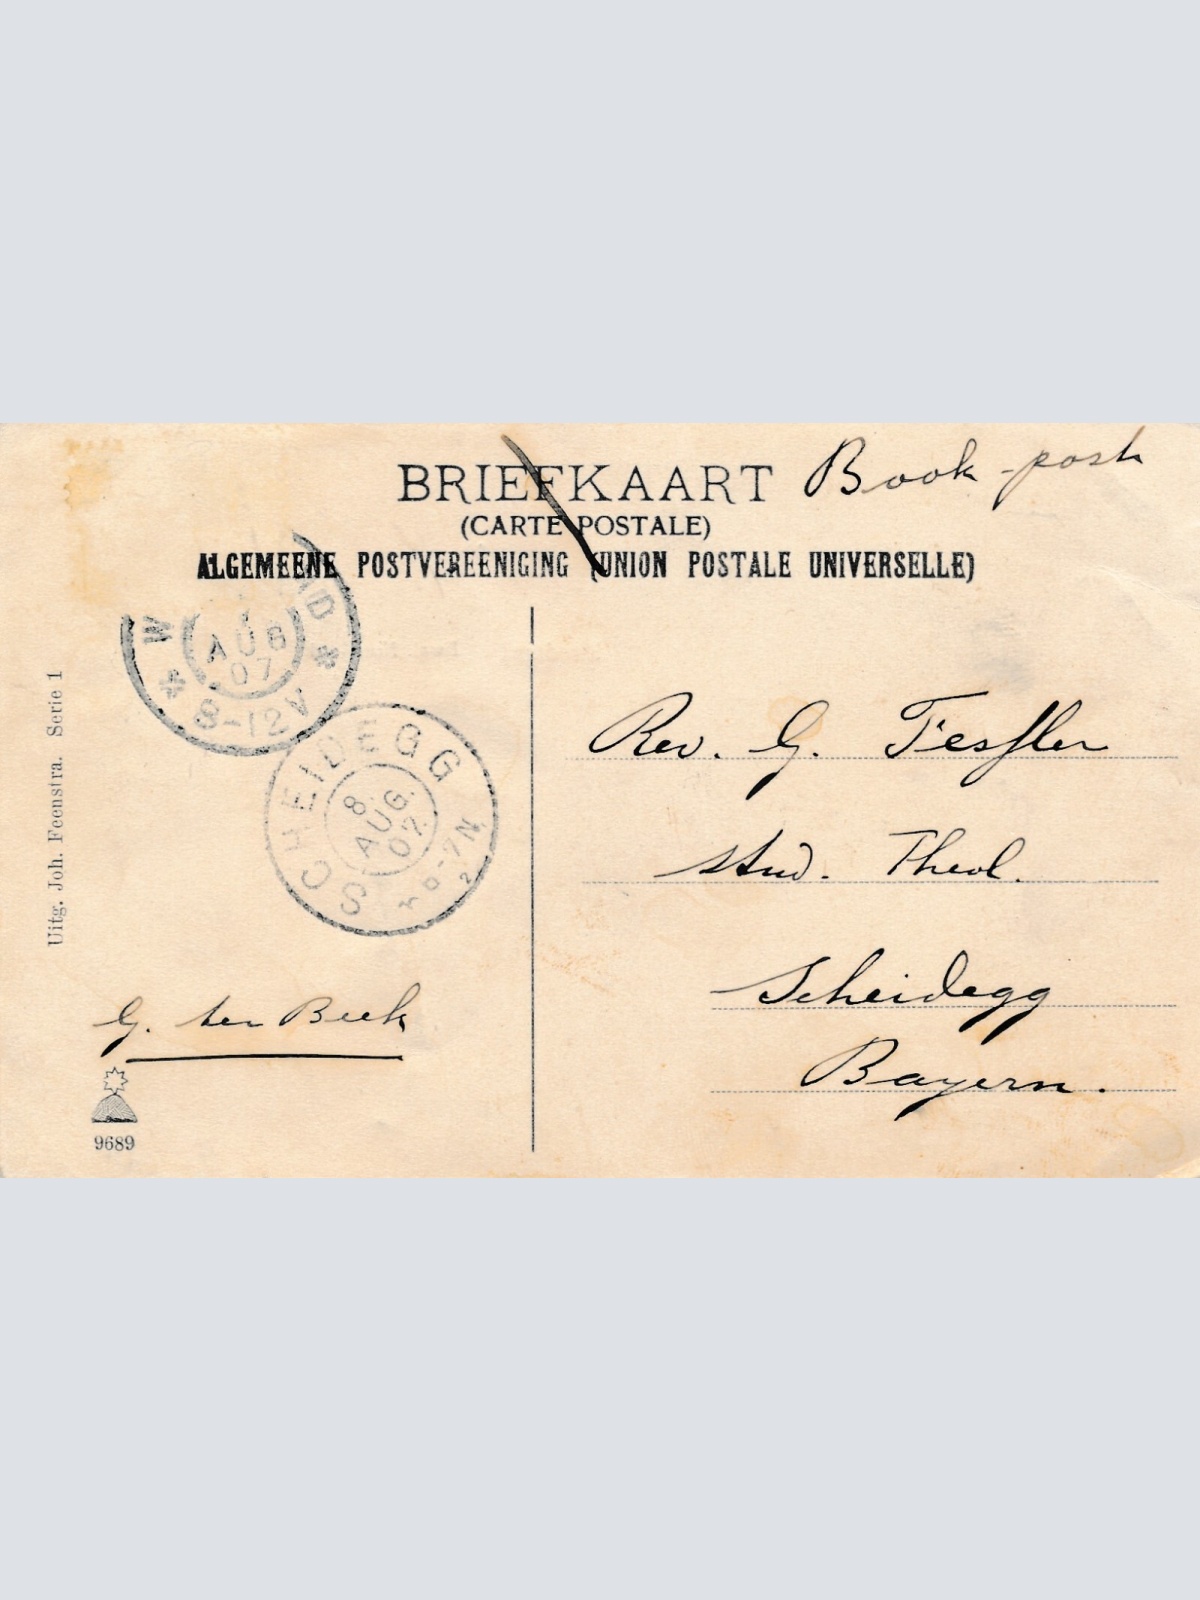 BRIEFKAART
Book-post
(CARTE POSTALE)
ALGEMEENE POSTVEREENIGING (UNION POSTALE UNIVERSELLE)
7
AUG
07
8-12V
SCHEIDEGG
8.
AUG.
07.
Uitg. Joh. Feenstra. Serie 1
Rev. G.
stud. Theol.
Scheidegg
Bayern.
G. ter Beek
9689